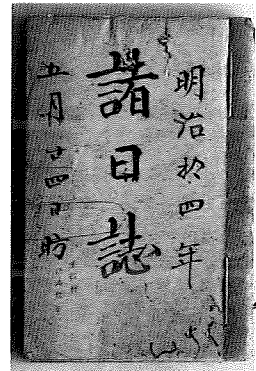 明治拾四年
諸日誌
五月廿四日